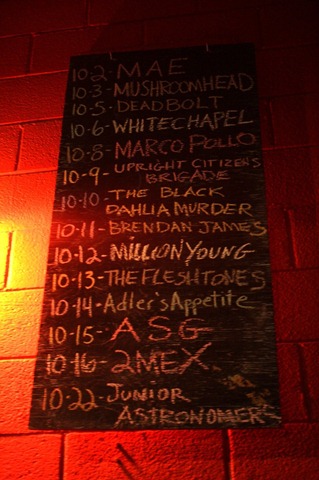 10-2-MAE
10-3-MUSHROOMHEAD
10-5-DEADBOLT
10-6-WHITECHAPEL
10-8-MARCO POLLO
10-9-UPRIGHT CITIZENS
BRIGADE
10-10-THE BLACK
DAHLIA MURDER
10-11-BRENDAN JAMES
10-12-MILLION YOUNG
10-13-THE FLESHTONES
10-14-Adler's Appetite
10-15-ASG
10-16-2MEX
10-22-JUNIOR
ASTRONOMERS